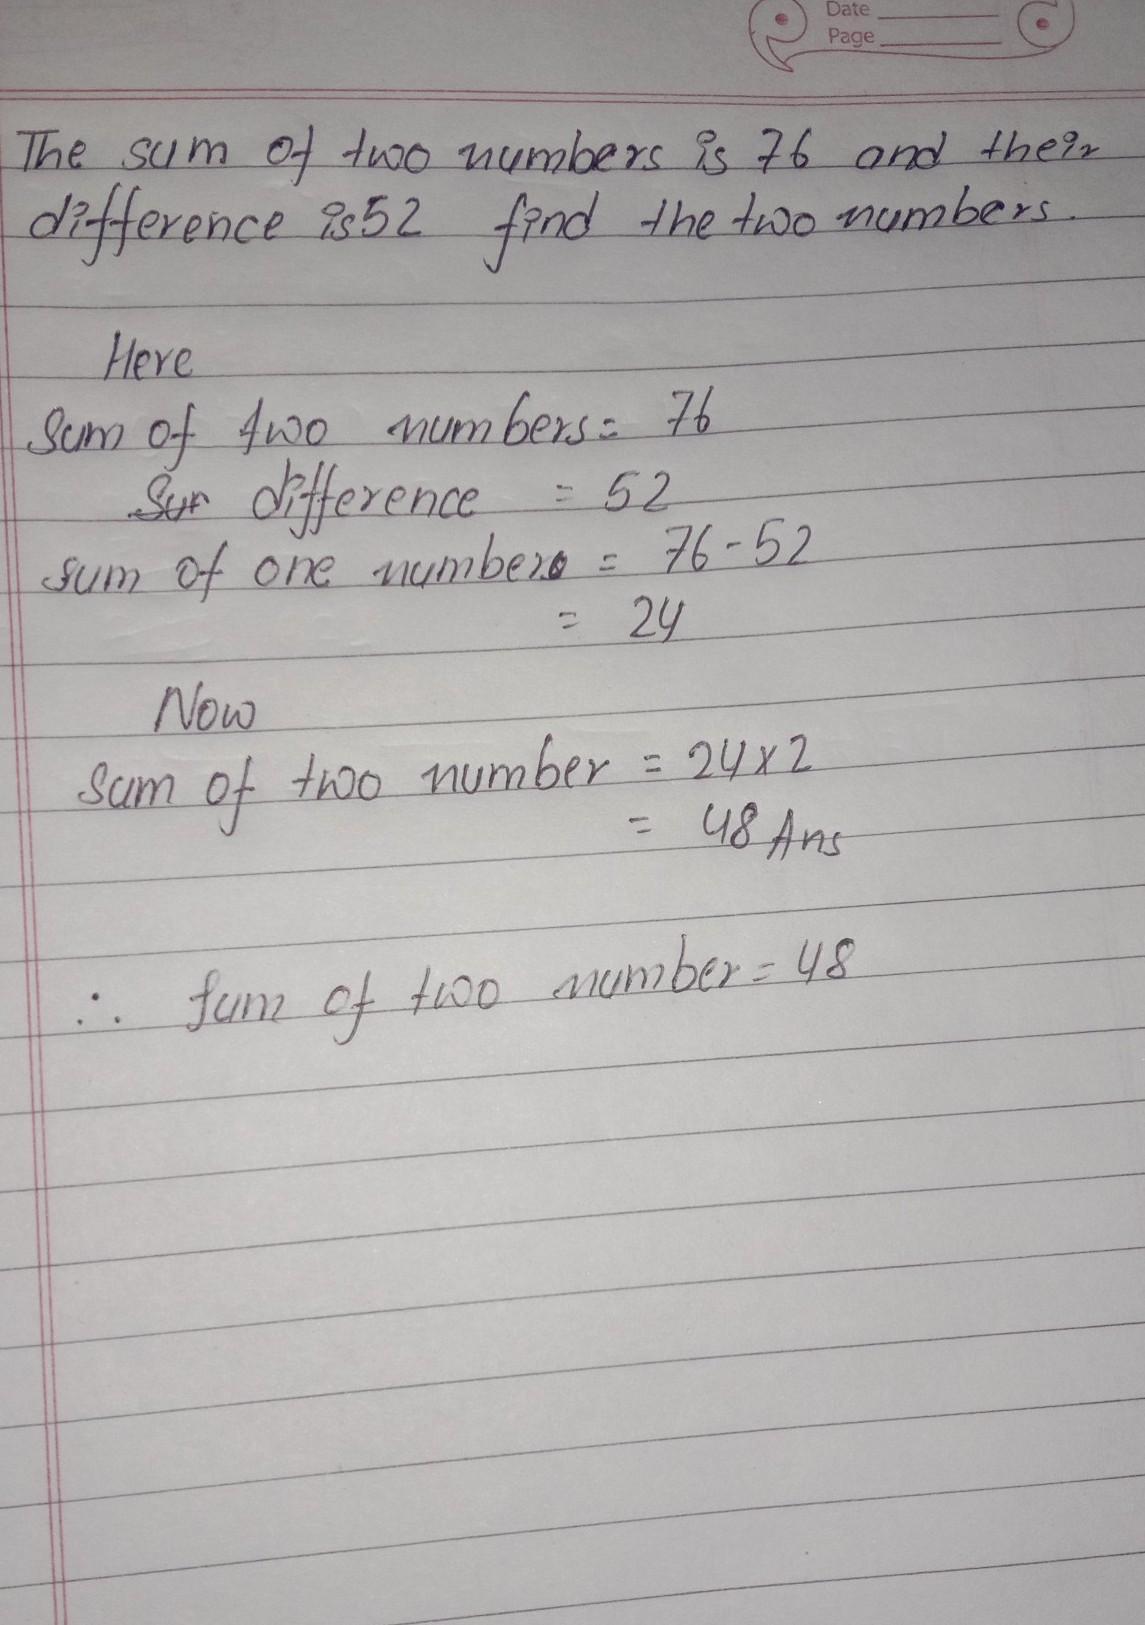 Date
Page
The sum of two numbers is 76 and their
difference is 52 find the two numbers.
Here
Sum of two numbers = 76
Sur difference = 52
sum of one number = 76-52
= 24
Now
Sum of two number = 24x2
= 48 Ans
∴ Sum of two number = 48